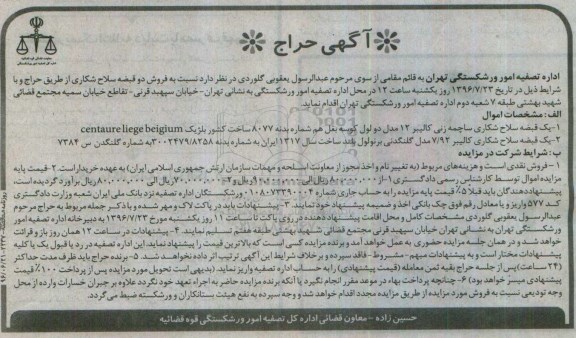 آگهی حراج
اداره تصفیه امور ورشکستگی تهران به قائم مقامی از سوی مرحوم عبدالرسول یعقوبی گلوردی در نظر دارد نسبت به فروش دو قبضه سلاح شکاری از طریق حراج و با
شرایط ذیل در تاریخ ۱۳۹۶/۷/۲۳ روز یکشنبه ساعت ۱۲ در محل اداره تصفیه امور ورشکستگی به نشانی تهران -خیابان سپهبد قرنی- تقاطع خیابان سمیه مجتمع قضائی
شهید بهشتی طبقه ۷ شعبه دوم اداره تصفیه امور ورشکستگی تهران اقدام نماید.
الف: مشخصات اموال
۱-یک قبضه سلاح شکاری ساچمه زنی کالیبر ۱۲ مدل دو لول کوسه بغل هم شماره بدنه ۸۰۷۷ ساخت کشور بلژیک centaure liege beigium
۲-یک قبضه سلاح شکاری کالیبر ۷/۹۲ مدل گلنگدنی برنو لول بلند ساخت سال ۱۳۱۷ ایران به شماره بدنه ۳۰۰۲۴۷۹/۸۲۵۸ به شماره گلنگدن س ۷۳۸۴
ب: شرایط شرکت در مزایده
۱- فروش نقدی است و هزینه‌های مربوط (به تغییر نام و اخذ مجوز از معاونت اسلحه و مهمات سازمان ارتش جمهوری اسلامی ایران) به عهده خریدار است. ۲-قیمت پایه
مزایده اموال توسط کارشناس رسمی دادگستری ۱-از ریال الی ریال و ۲- ۷۰/۰۰۰/۰۰۰ ریال الی ۸۰/۰۰۰/۰۰۰ ریال برآورد گردیده است،
پیشنهاددهندگان باید قبلا ۵٪ قیمت پایه مزایده را به حساب جاری شماره ورشکستگان اداره تصفیه نزد بانک ملی ایران شعبه وزارت دادگستری
کد ۵۷۷ واریز و یا معادل رقم فوق چک بانکی اخذ و ضمیمه پیشنهاد خود نمایند. ۳- پیشنهادات باید در پاکت لاک و مهر شده و با ذکر جمله مربوط به حراج مرحوم
عبدالرسول یعقوبی گلوردی مشخصات کامل و محل اقامت پیشنهاد دهنده در روی پاکت تا ساعت ۱۱ روز یکشنبه مورخ ۱۳۹۶/۷/۲۳ به دبیرخانه اداره تصفیه امور
ورشکستگی تهران به نشانی تهران خیابان سپهبد قرنی مجتمع قضائی شهید بهشتی طبقه هفتم تسلیم نمایند. ۴- پیشنهادات در ساعت ۱۲ همان روز باز و قرائت
خواهد شد و در همان جلسه مزایده حضوری به عمل خواهد آمد و برنده مزایده کسی است که بالاترین قیمت را پیشنهاد نماید. این اداره تصفیه در رد یا قبول یک یا کلیه
پیشنهادات مختار است و به پیشنهادات مبهم- مشروط- فاقد سپرده و برخلاف شرایط این آگهی ترتیب اثر داده نخواهد شد. ۵-برنده حراج باید ظرف مدت حداکثر
(۲۴ ساعت) پس از جلسه حراج بقیه ثمن معامله (قیمت پیشنهادی) را به حساب اداره تصفیه واریز نماید. (بدیهی است تحویل مورد مزایده پس از پرداخت ۱۰۰٪ قیمت
پیشنهادی میسر خواهد بود) ۶-چنانچه پرداخت بهاء در موعد مقرر انجام نگیرد یا آنکه برنده مزایده حاضر به اجراء تعهد خود نگردد علاوه بر جبران خسارات وارده از محل
وجه تودیعی نسبت به فروش مورد مزایده از طریق مزایده مجدد اقدام خواهد شد و وجه سپرده به نفع هیئت بستانکاران و ورشکسته ضبط می‌گردد.
حسین زاده - معاون قضائی اداره کل تصفیه امور ورشکستگی قوه قضائیه